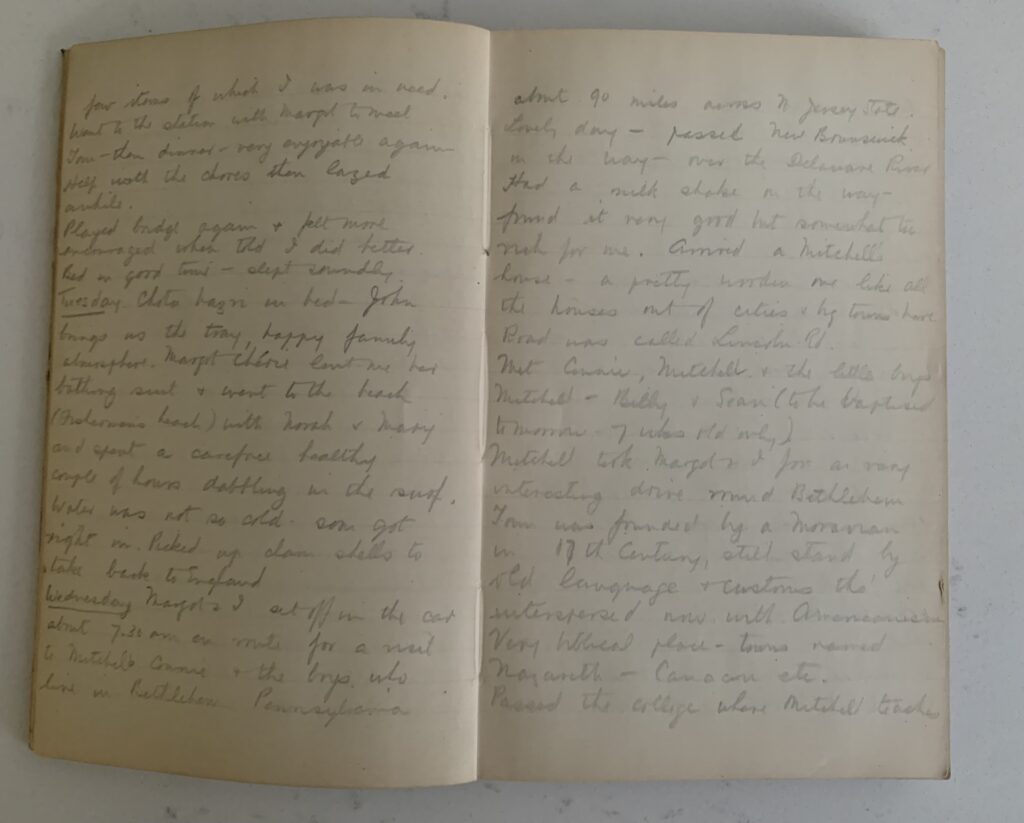 few items of which I was in need.
Went to the station with Margot to meet
Tom - then dinner - very enjoyable again
Help with the chores then lazed
awhile.
Played bridge again + felt more
encouraged when told I did better.
Bed in good time - slept soundly
Tuesday Chota hazri in bed - John
brings us the tray, happy family
atmosphere. Margot Chérie lent me her
bathing suit + went to the beach
(Fishermans beach) with Norah + Mary
and spent a carefree healthy
couple of hours dabbling in the surf.
Water was not so cold - Tom got
right in. Picked up clam shells to
take back to England
Wednesday Margot + I set off in the car
about 7.30 am en route for a visit
to Mitchell Connie + the boys who
live in Bethlehem Pennsylvania
about 90 miles across N Jersey State.
Lovely day - passed New Brunswick
on the way - over the Delaware River
Had a milk shake on the way -
found it very good but somewhat too
rich for me. Arrived a Mitchell's
house - a pretty wooden one like all
the houses out of cities + big towns here
Road was called Lincoln Rd.
Met Connie, Mitchell + the little boys
Mitchell - Billy + Sean (to be baptised
tomorrow - 7 wks old only)
Mitchell took Margot + I for a very
interesting drive round Bethlehem
Town was founded by a Moravian
in 17th Century, still stand by
old language + customs tho'
interspersed now with
Very biblical place - towns named
Nazareth - Canaan etc.
Passed the college where Mitchell teaches